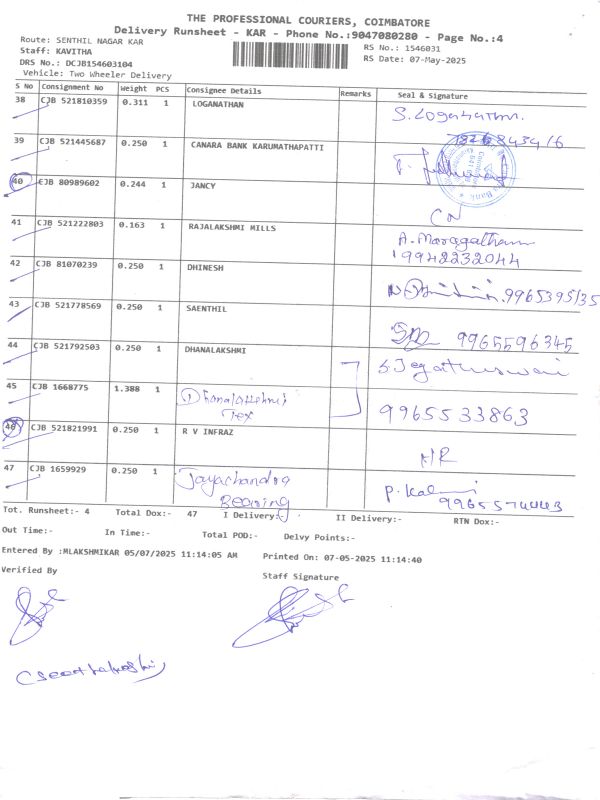 THE PROFESSIONAL COURIERS, COIMBATORE
Delivery Runsheet - KAR - Phone No.:9047080280 - Page No.:4
Route: SENTHIL NAGAR KAR
RS No.: 1546031
Staff: KAVITHA
RS Date: 07-May-2025
DRS No.: DCJB154603104
Vehicle: Two Wheeler Delivery
S No Consignment No Weight PCS Consignee Details Remarks Seal & Signature
38 CJB 521810359 0.311 1 LOGANATHAN S. Loganathan.
39 CJB 521445687 0.250 1 CANARA BANK KARUMATHAPATTI
40 EJB 80989602 0.244 1 JANCY CN
41 CJB 521222803 0.163 1 RAJALAKSHMI MILLS A. Maragatham
19942232044
42 CJB 81070239 0.250 1 DHINESH 9965395135
43 CJB 521778569 0.250 1 SAENTHIL 9965596345
44 CJB 521792503 0.250 1 DHANALAKSHMI S. Jegatheeswari
45 CJB 1668775 1.388 1 Dhanalakshmi
Tex 9965533863
46 CJB 521821991 0.250 1 R V INFRAZ
47 CJB 1659929 0.250 1 Jayachandra
Bearing P. Kalmi
Tot. Runsheet:- 4 Total Dox:- 47 I Delivery:- II Delivery:- RTN Dox:-
Out Time:- In Time:- Total POD:- Delvy Points:-
Entered By :MLAKSHMIKAR 05/07/2025 11:14:05 AM Printed On: 07-05-2025 11:14:40
Verified By Staff Signature